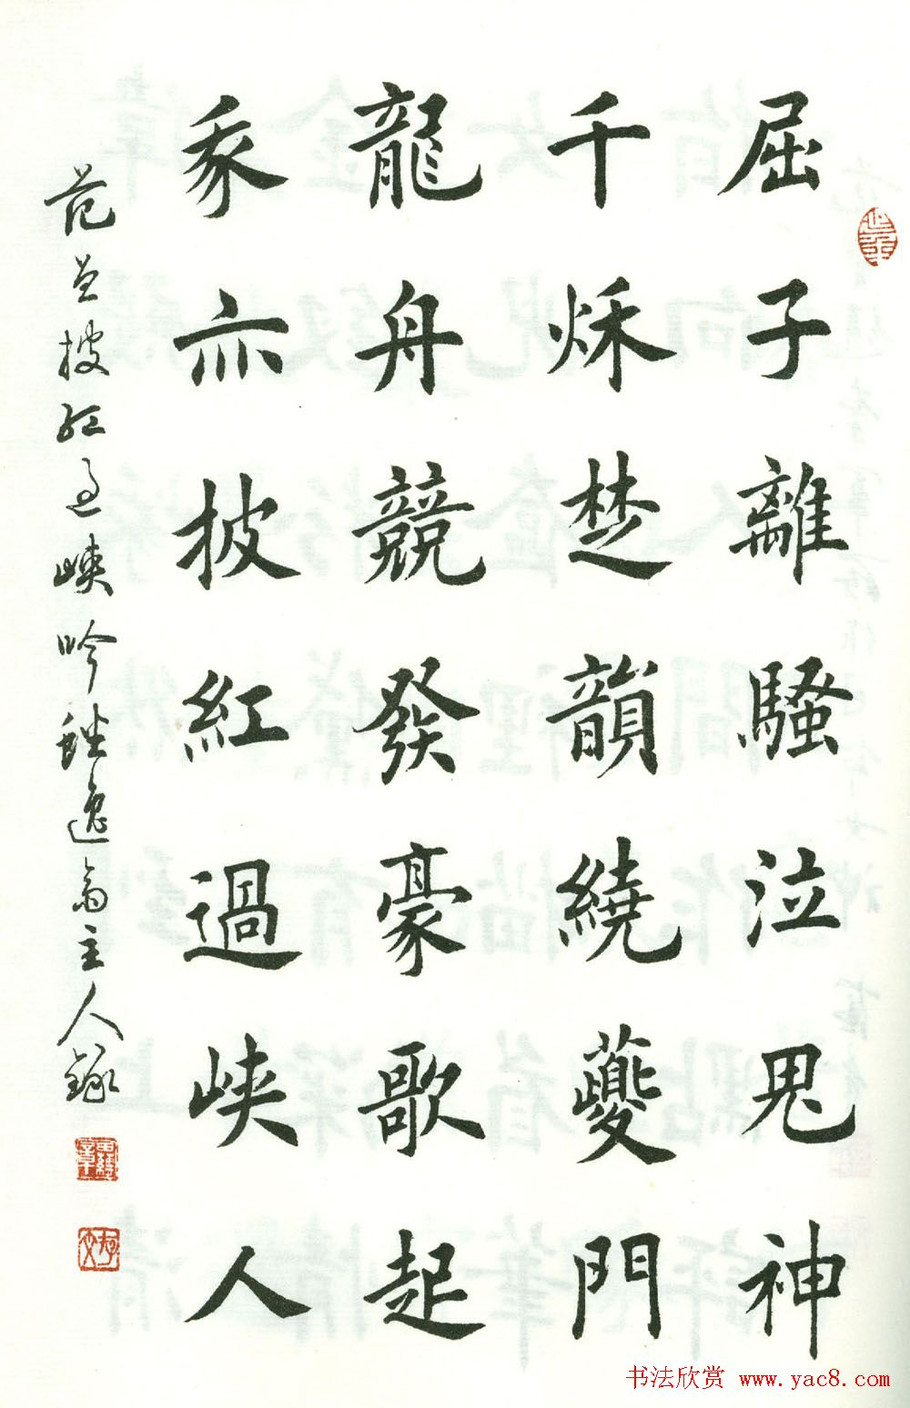 屈子離騷泣鬼神
千秌楚韻繞夔門
龍舟競發豪歌起
我亦披紅過峽人
范披紅過峽吟逸斋主人錄
书法欣赏 www.yac8.com